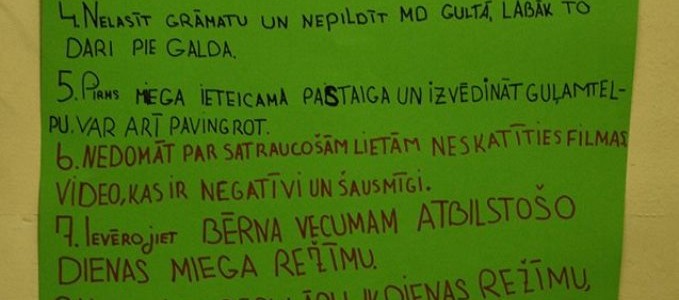 4. NELASĪT GRĀMATU UN NEPILDĪT MD GULTĀ, LABĀK TO
DARI PIE GALDA.
5. PIRMS MIEGA IETEICAMA PASTAIGA UN IZVĒDINĀT GUĻAMTEL-
PU. VAR ARĪ PAVINGROT.
6. NEDOMĀT PAR SATRAUCOŠĀM LIETĀM NESKATĪTIES FILMAS,
VIDEO, KAS IR NEGATĪVI UN ŠAUSMĪGI.
7. IEVĒROJIET BĒRNA VECUMAM ATBILSTOŠO
DIENAS MIEGA REŽĪMU.
DIENAS REŽĪMU,